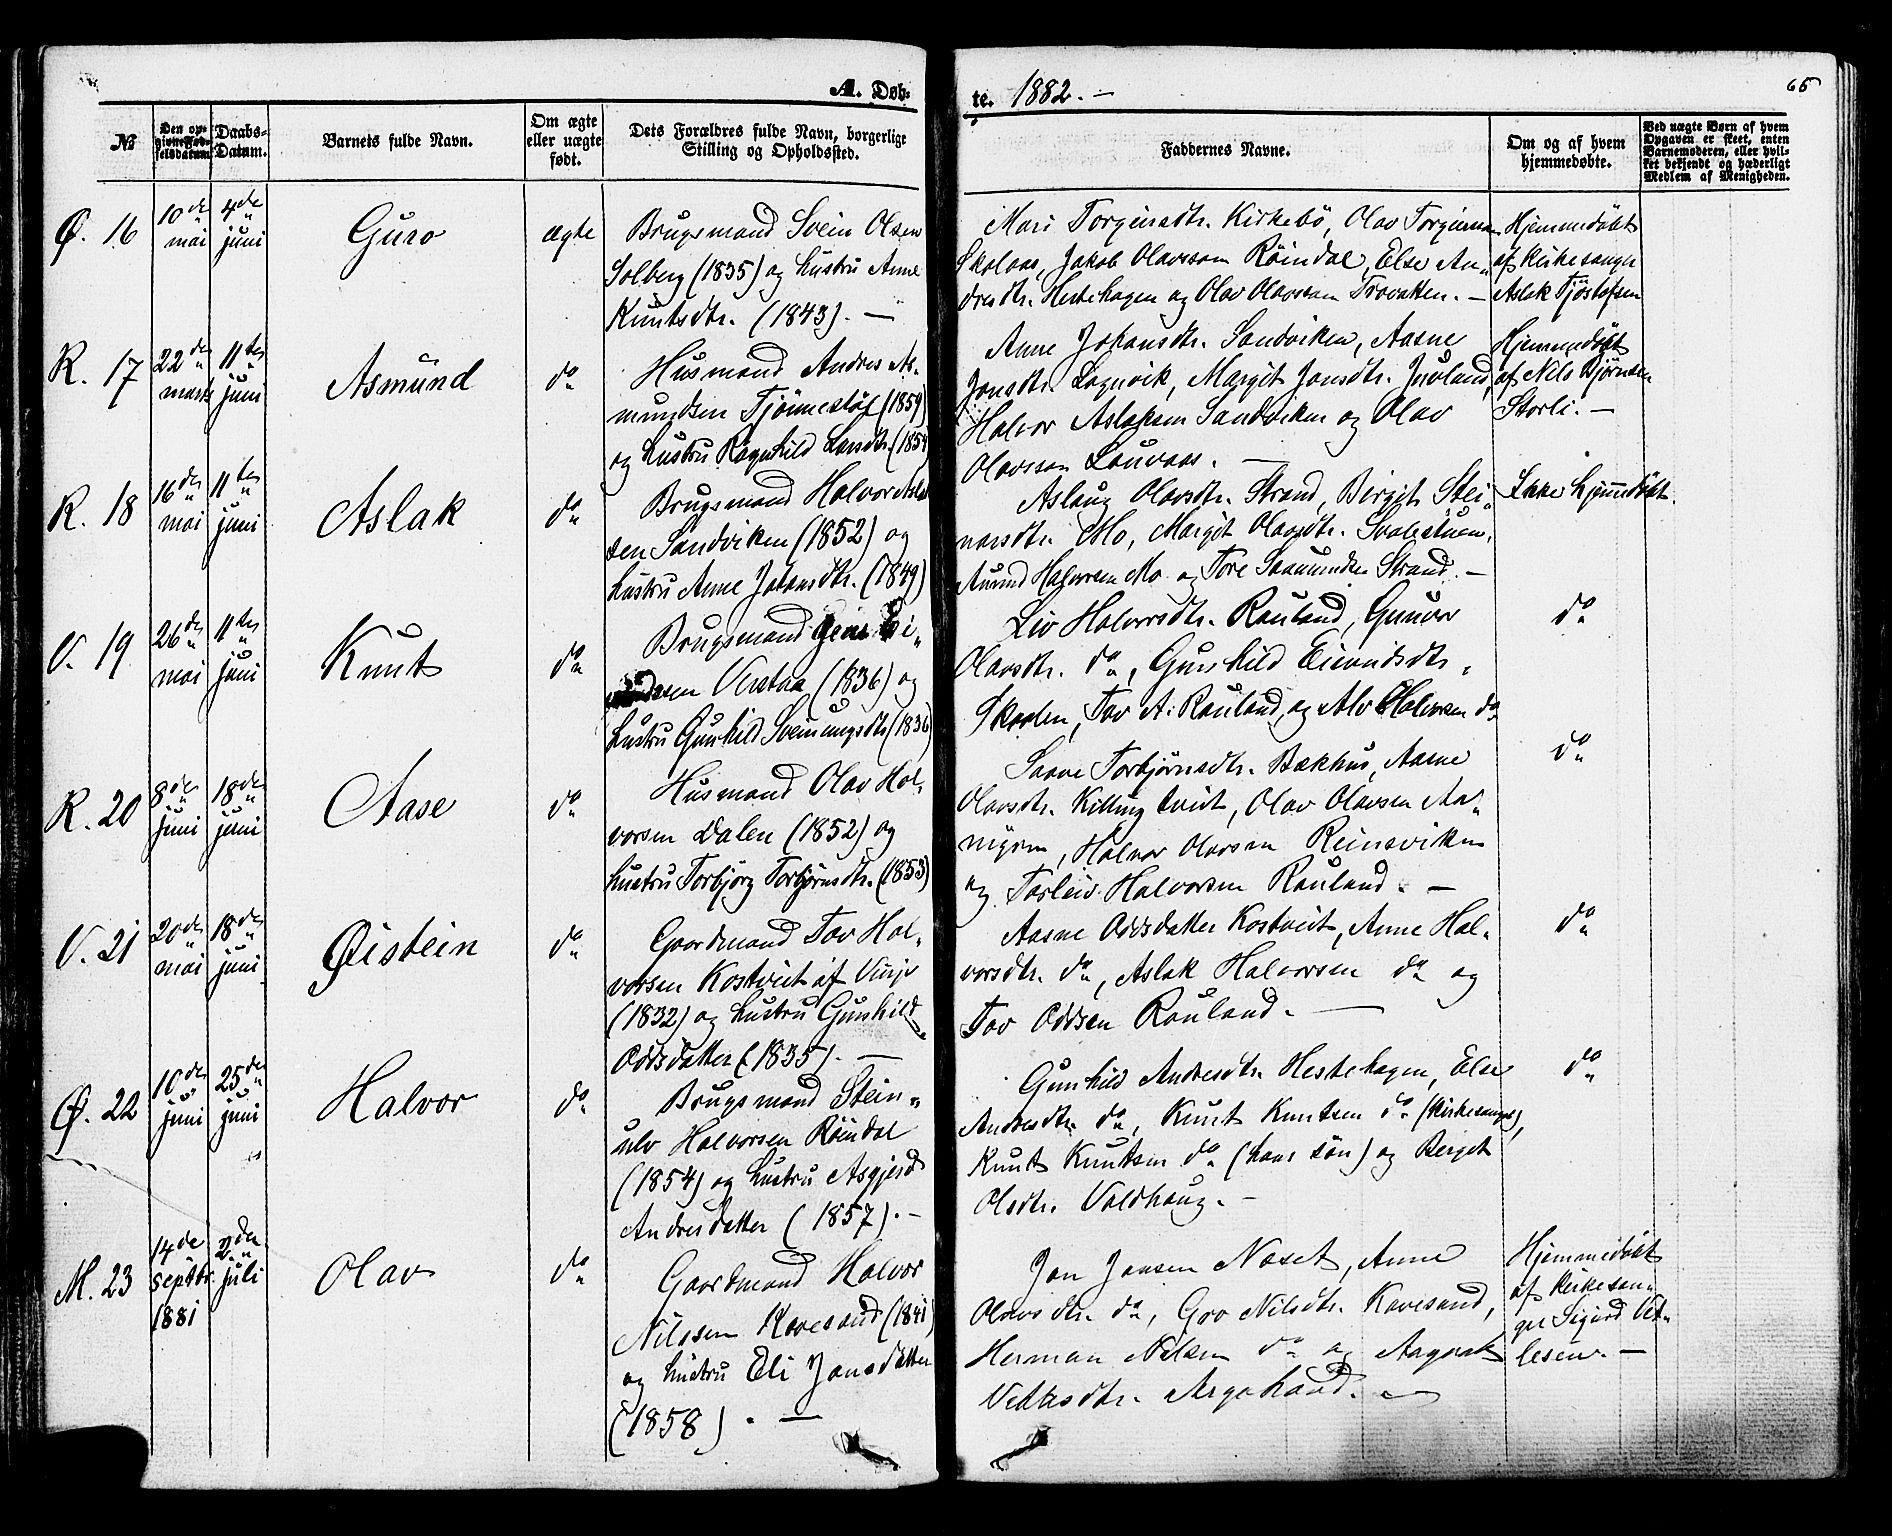 A. Døb-
te. 1882. —
65
№
Den op-
givne Fød-
selsdatum.
Daabs-
Datum.
Barnets fulde Navn.
Om ægte
eller uægte
født.
Dets Forældres fulde Navn, borgerlige
Stilling og Opholdssted.
Faddernes Navne.
Om og af hvem
hjemmedøbte.
Ved uægte Børn af hvem
Opgaven er skeet, enten
Barnemoderen, eller hvil-
ket bekjendt og hæderligt
Medlem af Menigheden.
Ø. 16
10de
mai
4de
juni
Guro
ægte
Brugsmand Svein Olsen
Solberg (1835) og hustru Anne
Knutsdtr. (1843). —
Mari Torgeirsdtr. Kirkebö, Olav
Skalaas, Jakob Olavssøn Röindal, Else An-
dresdtr. Hestehagen og Olav Olavssøn —
Hjemmedøbt
af kirkesanger
Aslak Tjöstolfsen
R. 17
22de
marts
11te
juni
Asmund
do
Husmand Andres As-
mundsen Tjönnestöl (1859)
og hustru Ragnhild Larsdtr. (1854
Anne Johansdtr. Sandviken, Aasne
Jonsdtr. Lognvik, Margit Jonsdtr. Juvland,
Halvor Aslaksen Sandviken og Olav
Olavssøn Lauvaas. —
Hjemmedøbt
af Nils Bjørnsen
Storli. —
R. 18
16de
mai
11te
juni
Aslak
do
Brugsmand Halvor Aslak
sen Sandviken (1852) og
hustru Anne Johansdtr. (1849)
Aslaug Olavsdtr. Strand, Birgit Stei-
narsdtr. Mo, Margit Olavsdtr.
Halvorsen Mo og Tore Saamundsen Strand. —
Ikke hjemmdøbt.
V. 19
26de
mai
11te
juni
Knut
do
Brugsmand Geir Ei-
sen Verstaa (1836) og
hustru Gunhild Sveinungsdtr (1836)
Liv Halvorsdtr. Rauland, Gunvor
Olavsdtr. do, Gunhild Eivindsdtr.
Tov A. Rauland, og Alv Halvorsen do
do
R. 20
8de
juni
18de
juni
Aase
do
Husmand Olav Hal-
vorsen Dalen (1852) og
hustru Torbjørg Torbjørnsdtr. (1853)
Torbjørnsdtr. Bakhus, Aasne
Olavsdtr. Killingtveit, Olav Olavsen
Halvor Olavsen Reinsviken
og Torleiv Halvorsen Rauland. —
do
V. 21
20de
mai
18de
juni
Øistein
do
Gaardmand Tov Hal-
vorsen Kostveit af Vinje
(1832) og hustru Gunhild
Oddsdatter (1835). —
Aasne Oddsdatter Kostveit, Anne Hal-
vorsdtr. do, Aslak Halvorsen do og
Tov Oddsen Rauland. —
do
Ø. 22
10de
juni
25de
juni
Halvor
do
Brugsmand Stein-
ulv Halvorsen Röindal
(1854) og hustru Asgjerd
Andresdatter (1857). —
Gunhild Andresdtr. Hestehagen, Else
Andresdtr. do, Knut Knutsen do (kirkesanger),
Knut Knutsen do (hans søn) og Berget
Olsdtr. Valdhaug. —
do
M. 23
14de
septbr.
1881
2den
juli
Olav
do
Gaardmand Halvor
Nilssen Kavesand (1841)
og hustru Eli Jonsdatter
(1858). —
Jon Jonsen Naset, Anne
Olavsdtr. do, Gro Nilsdtr. Kavesand,
Herman Nilsen do og Aagot
—
Hjemmedøbt
af kirkesan-
ger Sigurd Vet-
lesen. —